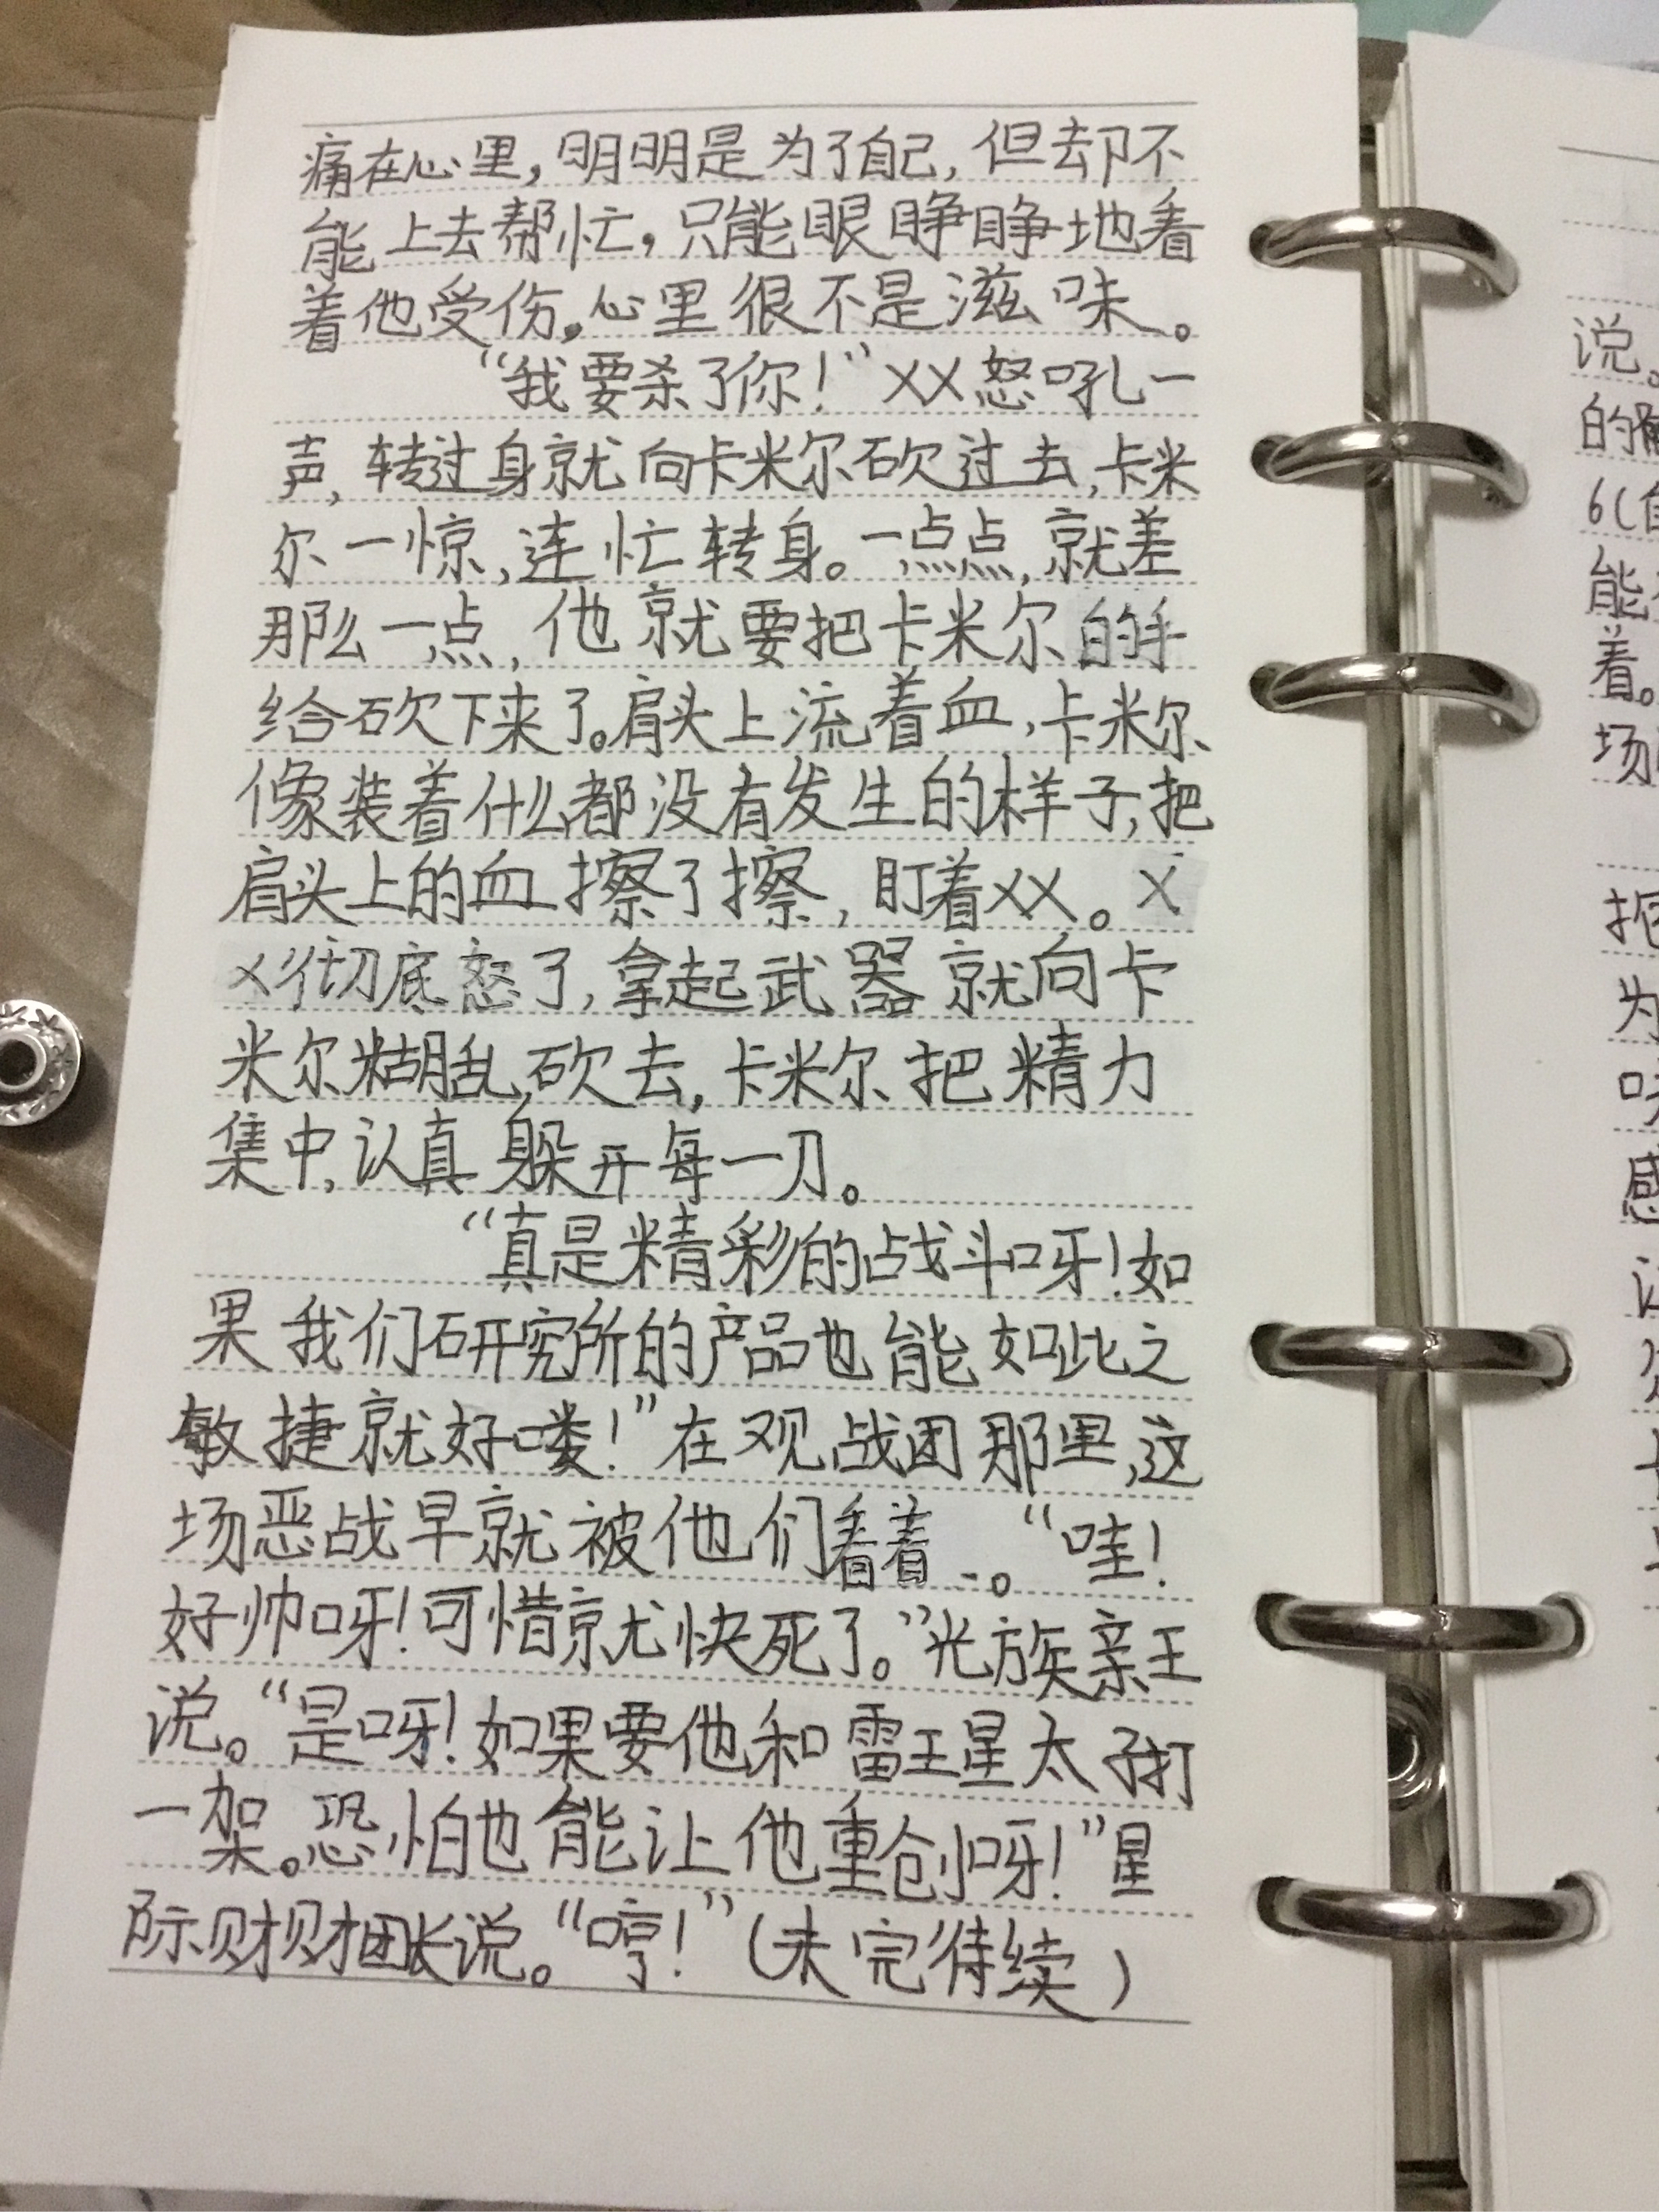 痛在心里，明明是为了自己，但却不
能上去帮忙，只能眼睁睁地看
着他受伤，心里很不是滋味。
“我要杀了你！”XX怒吼一
声，转过身就向卡米尔砍过去，卡米
尔一惊，连忙转身。一点点，就差
那么一点，他就要把卡米尔的手
给砍下来了。肩头上流着血，卡米尔
像装着什么都没有发生的样子，把
肩头上的血擦了擦，盯着XX。X
X彻底怒了，拿起武器就向卡
米尔糊乱砍去，卡米尔把精力
集中，认真躲开每一刀。
“真是精彩的战斗呀！如
果我们研究所的产品也能如此之
敏捷就好喽！”在观战团那里，这
场恶战早就被他们看着、。“哇！
好帅呀！可惜就快死了。”光族亲王
说。“是呀！如果要他和雷王星太子打
一架。恐怕也能让他重创呀！”星
际财团长说。“哼！”（未完待续）
说。
的
6(
能
着。
场
把
为
感